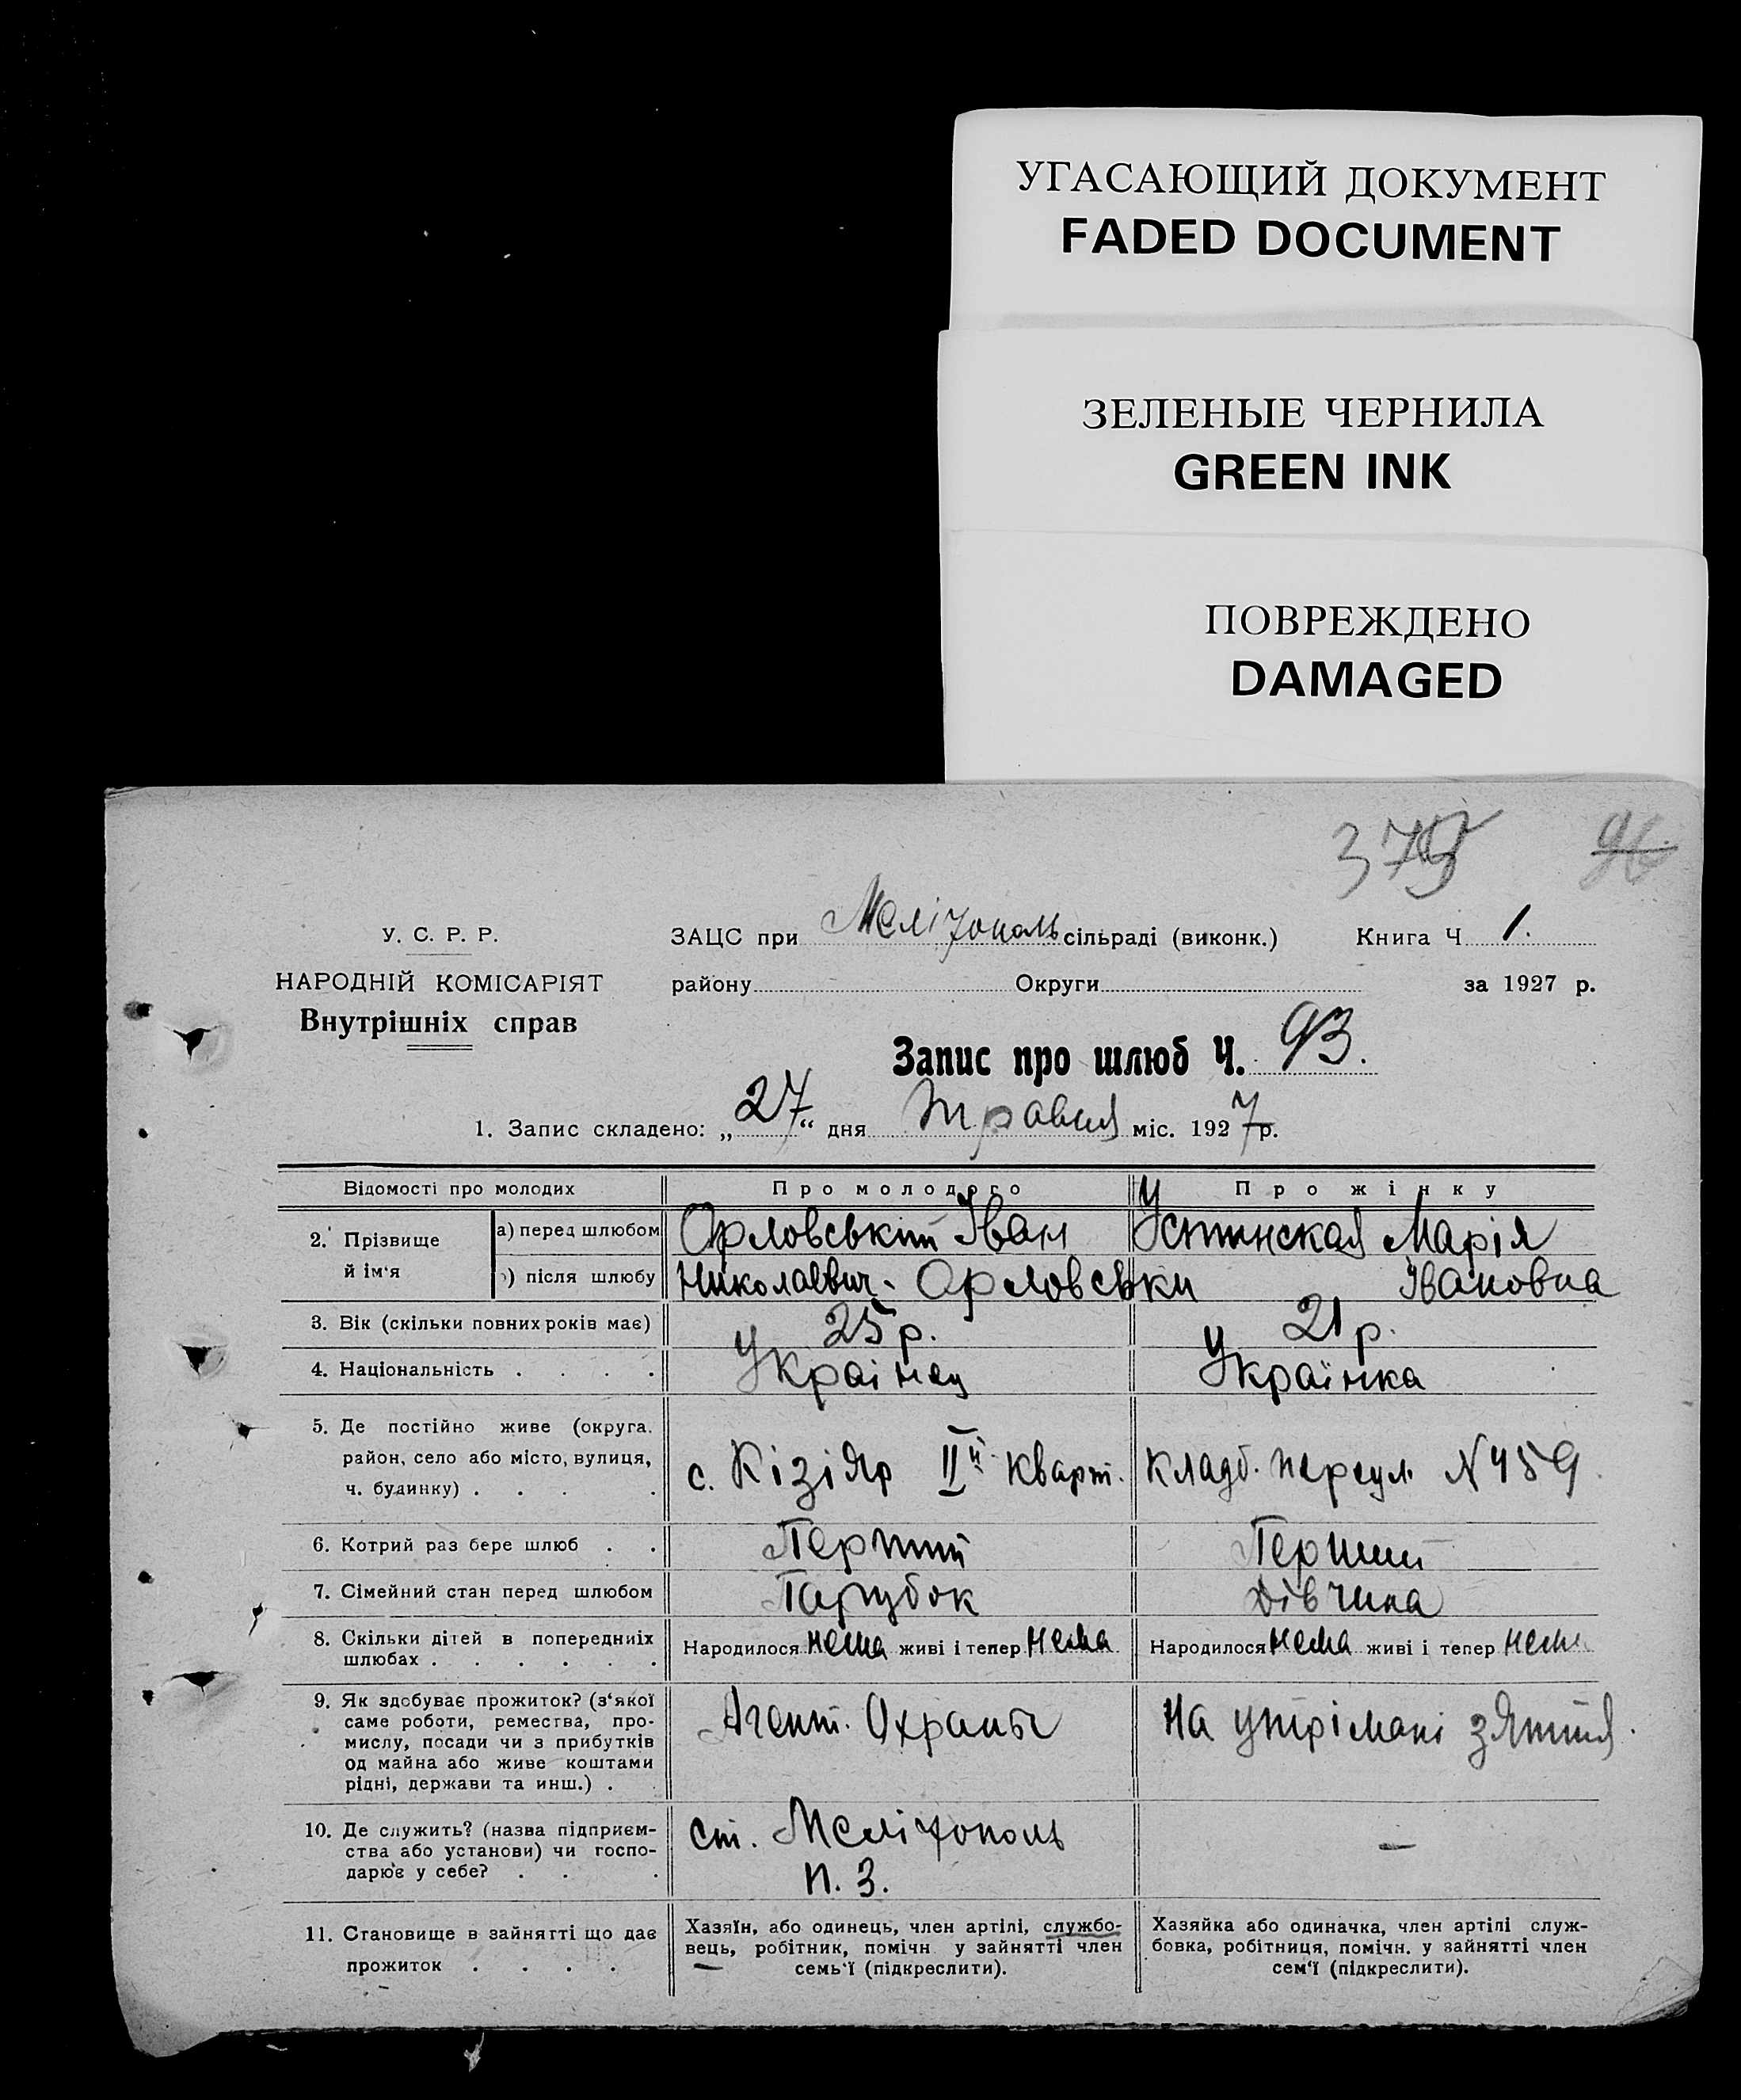 УГАСАЮЩИЙ ДОКУМЕНТ
FADED DOCUMENT
ЗЕЛЕНЫЕ ЧЕРНИЛА
GREEN INK
ПОВРЕЖДЕНО
DAMAGED
У. С. Р. Р.
НАРОДНІЙ КОМІСАРІЯТ
Внутрішніх справ
ЗАЦС при Мелітополь сільраді (виконк.) Книга Ч 1.
району Округи за 1927 р.
Запис про шлюб Ч. 93.
1. Запис складено: „27“ дня травня міс. 1927 р.
Відомості про молодих Про молодого Про жінку
2. Прізвище й ім‘я а) перед шлюбом Орловський Іван Устинская Марія
після шлюбу Николаевич - Орловськи Івановна
3. Вік (скільки повних років має) 25 р. 21 р.
4. Національність . . . . Украінец Украінка
5. Де постійно живе (округа.
район, село або місто, вулиця,
ч. будинку) . . . .
с. Кізіяр II й кварт. Кладб. переул. N 459
6. Котрий раз бере шлюб . . Перший Перший
7. Сімейний стан перед шлюбом Парубок Дівчина
8. Скільки дітей в попередниіх
шлюбах . . . . . .
Народилося нема живі і тепер нема Народилося нема живі і тепер нема
9. Як здобуває прожиток? (з‘якої
саме роботи, ремества, про-
мислу, посади чи з прибутків
од майна або живе коштами
рідні, держави та инш.) .
Агент. Охраны На утрімані зяття.
10. Де служить? (назва підприєм-
ства або установи) чи госпо-
дарює у себе? . . .
ст. Мелітополь —
П. З.
11. Становище в зайнятті що дає
прожиток . . . .
Хазяїн, або одинець, член артілі, службо-
вець, робітник, помічн. у зайнятті член
семь‘ї (підкреслити).
Хазяйка або одиначка, член артілі служ-
бовка, робітниця, помічн. у зайнятті член
сем‘ї (підкреслити).